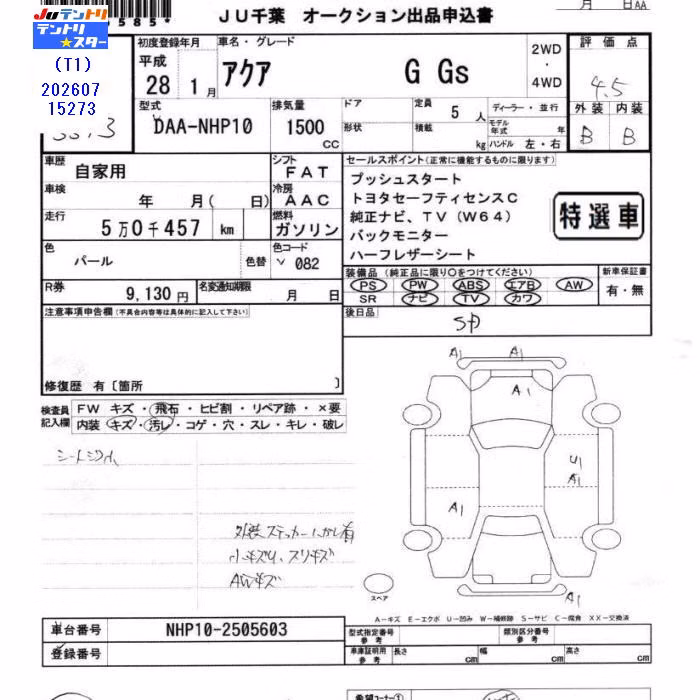 JU千葉 オークション出品申込書
月 日AA
JUテントリ
テントリ★スター
(T1)
202607
15273
585*
初度登録年月
平成
28 1月
車名・グレード
アクア G Gs
2WD
・
4WD
評価点
4.5
外装 内装
B B
型式
DAA-NHP10
排気量
1500
CC
ドア
形状
定員 5 人
積載 kg
ディーラー・並行
モデル年式 年
ハンドル 左・右
車歴
自家用
シフト
FAT
車検
年 月( 日)
冷房
AAC
走行
5万0千457 km
燃料
ガソリン
色
パール
色替
色コード
082
R券
9,130円
名変通知期限
月 日
セールスポイント(正常に機能するものに限ります)
プッシュスタート
トヨタセーフティセンスC
純正ナビ、TV(W64)
バックモニター
ハーフレザーシート
特選車
装備品(純正品に限り○をつけてください)
PS PW ABS エアB AW
SR ナビ TV カワ
新車保証書
有・無
後日品
SD
注意事項申告欄(不具合内容等は具体的に記入して下さい)
修復歴 有〔箇所 〕
検査員記入欄
FW キズ・飛石・ヒビ割・リペア跡・×要
内装 キズ・汚レ・コゲ・穴・スレ・キレ・破レ
外装ステッカーはがし有
小キズU、スリキズ
AWキズ
A1 A1
A1
U1
A1
A1
A1
スペア
A-キズ E-エクボ U-凹み W-補修跡 S-サビ C-腐食 XX-交換済
車台番号
NHP10-2505603
登録番号
型式指定番号
参考
類別区分番号
参考
車庫証明用
参考
長さ cm 幅 cm 高さ cm
希望コーナー①